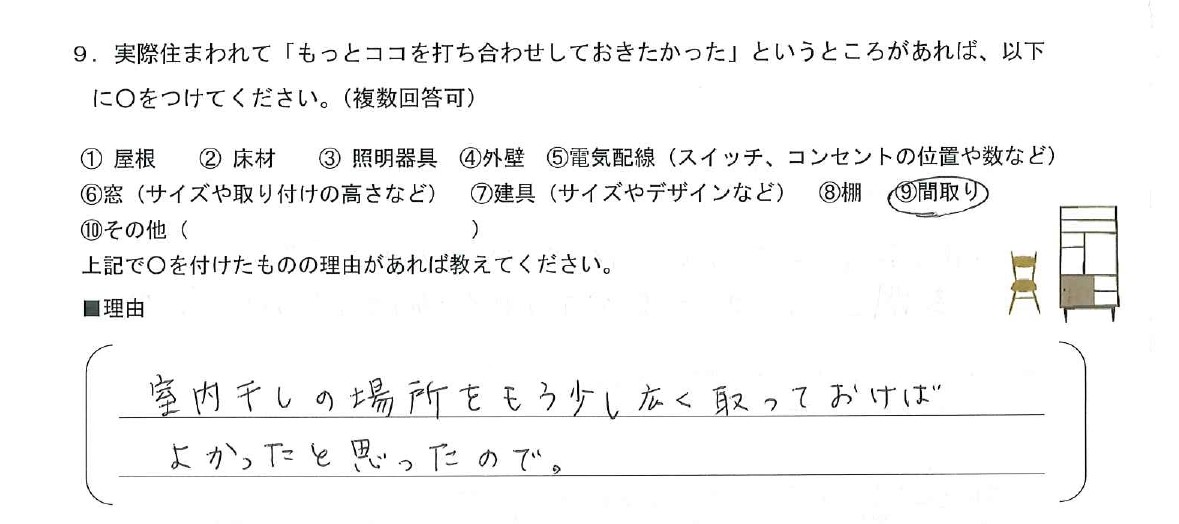 9．実際住まわれて「もっとココを打ち合わせしておきたかった」というところがあれば、以下
に〇をつけてください。（複数回答可）
① 屋根　② 床材　③ 照明器具　④外壁　⑤電気配線（スイッチ、コンセントの位置や数など）
⑥窓（サイズや取り付けの高さなど）　⑦建具（サイズやデザインなど）　⑧棚　⑨間取り
⑩その他（　　　　　　　　　　　　　）
上記で〇を付けたものの理由があれば教えてください。
■理由
室内干しの場所をもう少し広く取っておけば
よかったと思ったので。